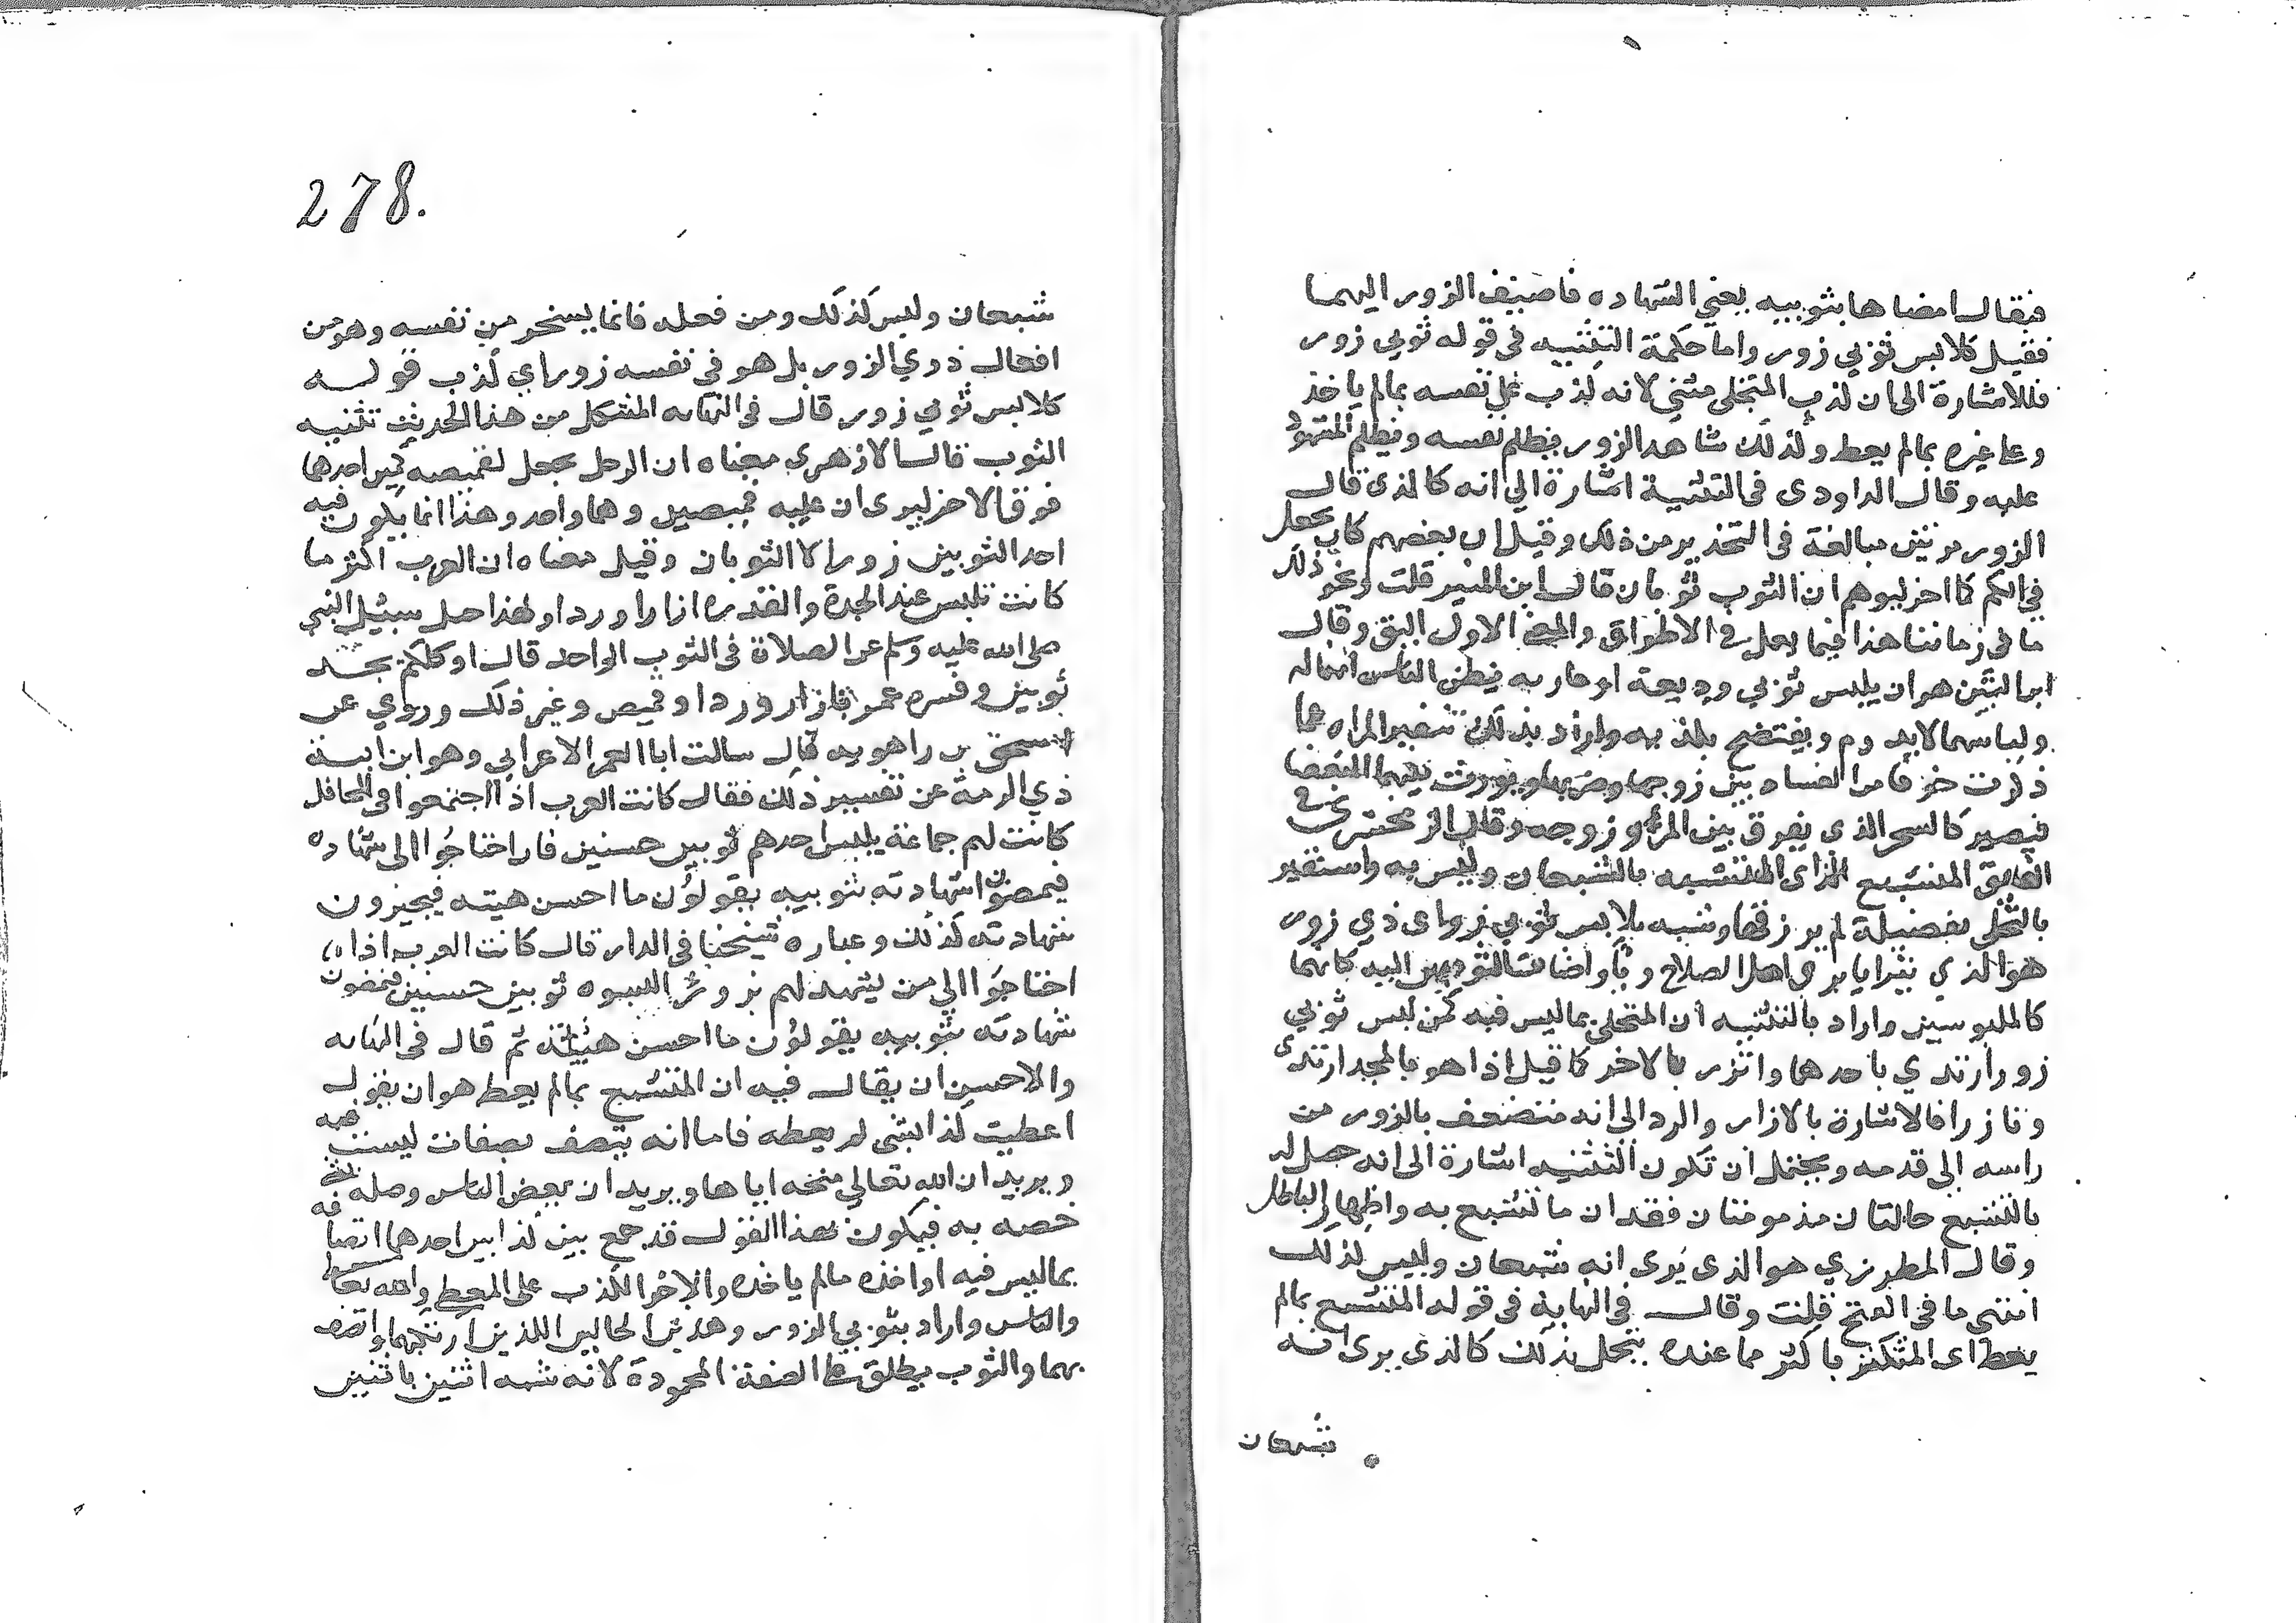 فيقال امضاها بثوبيه يعني الشهاده فاضيف الزور اليهما
فقيل كلابس ثوبي زور واما حكمة التثنيه في قوله ثوبي زور
فللاشارة الى ان كذب المتحلى مثني لانه كذب على نفسه بمالم ياخذ
وعلى غيره بمالم يعط وكذلك شاهد الزور يظلم نفسه ويظلم المشهود
عليه وقال الداودى فى التثنية اشارة الي انه كالذى قال
الزور مرتين مبالغة فى التحذير من ذلك وقيل ان بعضهم كان يجعل
في الكم كما اخر ليوهم ان الثوب ثوبان قال ابن المنير قلت ونحو ذلك
ما فى زماننا هذا فيما يعمل في الاطواق والمعنى الاول اليق وقال
ابن التين هو ان يلبس ثوبي وديعة او عاريه يظن الناس انهما له
ولباسهما لا يدوم ويفتضح بكذبه واراد بذلك تنفير المراه عما
ذكرت خوفا من الفساد بين زوجها وضرتها ويورث بينهما البغضا
فيصير كالسحر الذى يفرق بين المرء وزوجه وقال الزمخشرى في
الفايق المتشبع اي المتشبه بالشبعان وليس به واستعير
بالتحلى بفضيلة لم يرزقها وشبه بلابس ثوبي زور اى ذي زور
هو الذي يتزايا بزي اهل الصلاح ريا واضاف الثوبين اليه كانهما
كالملبوسين واراد بالتثنيه ان المتحلى بما ليس فيه كمن لبس ثوبي
زور ارتدي باحدهما واتزر بالاخر كما قيل اذا هو بالمجد ارتدى
وتازرا فالاشارة بالازار والردا الى انه متصف بالزور من
راسه الى قدمه ويحتمل ان تكون التثنيه اشارة الى انه حصل له
بالتشبع حالتان مذمومتان فقدان ما تشبع به واظهار الباطل
وقال المطرزي هو الذى يرى انه شبعان وليس كذلك
انتهى ما فى الفتح قلت وقال فى النهاية فى قوله المتشبع بمالم
يعط اى المتكثر باكثر مما عنده يتجمل بذلك كالذى يرى انه
شبعان
278.
شبعان وليس كذلك ومن فعله فانما يسخر من نفسه وهو من
افعال ذوي الزور بل هو فى نفسه زور اي كذب قوله
كلابس ثوبي زور قال فى النهايه المشكل من هذا الحديث تثنيه
الثوب قال الازهرى معناه ان الرجل يجعل لقميصه كمين احدهما
فوق الاخر ليرى ان عليه قميصين وهما واحد وهذا انما يكون فيه
احد الثوبين زورا لا الثوبان وقيل معناه ان العرب اكثر ما
كانت تلبس عند الجدة والقدره ازارا وردا ولهذا حين سئل النبي
صلى الله عليه وسلم عن الصلاة فى الثوب الواحد قال اوكلكم يجد
ثوبين وفسره عمر بازار وردا وقميص وغير ذلك وروي عن
اسحق بن راهويه قال سالت ابا الغمر الاعرابي وهو ابن ابنة
ذي الرمة عن تفسير ذلك فقال كانت العرب اذا اجتمعوا فى المحافل
كانت لهم جماعة يلبس احدهم ثوبين حسنين فان احتاجوا الى شهاده
فيمضون شهادته بثوبيه يقولون ما احسن هيته فيجيزون
شهادته كذلك وعباره شيخنا فى الدر قال كانت العرب اذا
احتاجوا الي من يشهد لهم بزور البسوه ثوبين حسنين فيمضون
شهادته بثوبيه يقولون ما احسن هيئته ثم قال فى النهايه
والاحسن ان يقال فيه ان المتشبع بمالم يعط هو ان يقول
اعطيت كذا لشي لم يعطه فاما انه يتصف بصفات ليست فيه
ويريد ان الله تعالي منحه اياها ويريد ان بعض الناس وصله بشي
خصه به فيكون بهذا القول قد جمع بين كذبين احدهما اتصافه
بما ليس فيه او اخذه مالم ياخذه والاخر الكذب على المعطي والله تعالى
والناس واراد بثوبي الزور هذين الحالين اللذين ارتكبهما واتصف
بهما والثوب يطلق على الصفة المحمودة لانه شبه اثنين باثنين